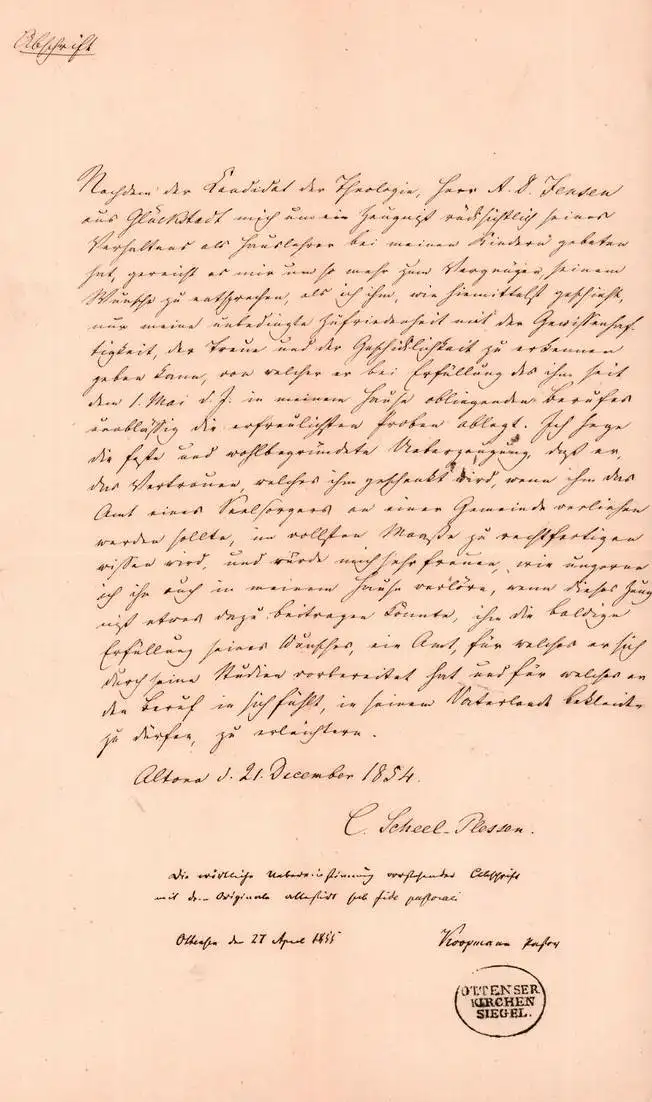 Abschrift
Nachdem der Candidat der Theologie, Herr A. D. Jensen
aus Glückstadt mich um ein Zeugniß rücksichtlich seines
Verhaltens als Hauslehrer bei meinen Kindern gebeten
hat, gereicht es mir um so mehr zum Vergnügen, seinem
Wunsche zu entsprechen, als ich ihm, wie hiemittelst geschieht,
nur meine unbedingte Zufriedenheit mit der Gewissenhaf-
tigkeit, der Treue und der Geschicklichkeit zu erkennen
geben kann, von welcher er bei Erfüllung des ihm seit
dem 1. Mai d. J. in meinem Hause obliegenden Berufes
unablässig die erfreulichsten Proben ablegt. Ich hege
die feste und wohlbegründete Ueberzeugung, daß er,
das Vertrauen, welches ihm geschenkt wird, wenn ihm das
Amt eines Seelsorgers an einer Gemeinde verliehen
werden sollte, im vollsten Maaße zu rechtfertigen
wissen wird, und würde mich sehr freuen, wie ungerne
ich ihn auch in meinem Hause verlöre, wenn dieses Zeug
niß etwas dazu beitragen könnte, ihm die baldige
Erfüllung seines Wunsches, ein Amt, für welches er sich
durch seine Studien vorbereitet hat und für welches er
den Beruf in sich fühlt, in seinem Vaterlande bekleiden
zu dürfen, zu erleichtern.
Altona d. 21. December 1854.
C. Scheel-Plessen.
Die wörtliche Uebereinstimmung vorstehender Abschrift
mit dem Originale attestirt sub fide pastorali
Ottensen den 27 April 1855
Koopmann Pastor
OTTENSER
KIRCHEN
SIEGEL.